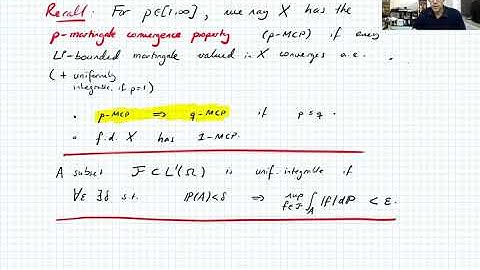 Recall: For p∈[1,∞], we say X has the
p-martingale convergence property (p-MCP) if every
Lᵖ-bounded martingale valued in X converges a.e.
(+ uniformly
integrable if p=1)
· p-MCP ⟹ q-MCP if p≤q.
· f.d. X has 1-MCP.
A subset F ⊂ L¹(Ω) is unif. integrable if
∀ε ∃δ s.t. P(A)<δ ⟹ sup_{f∈F} ∫_A |f|dP < ε.